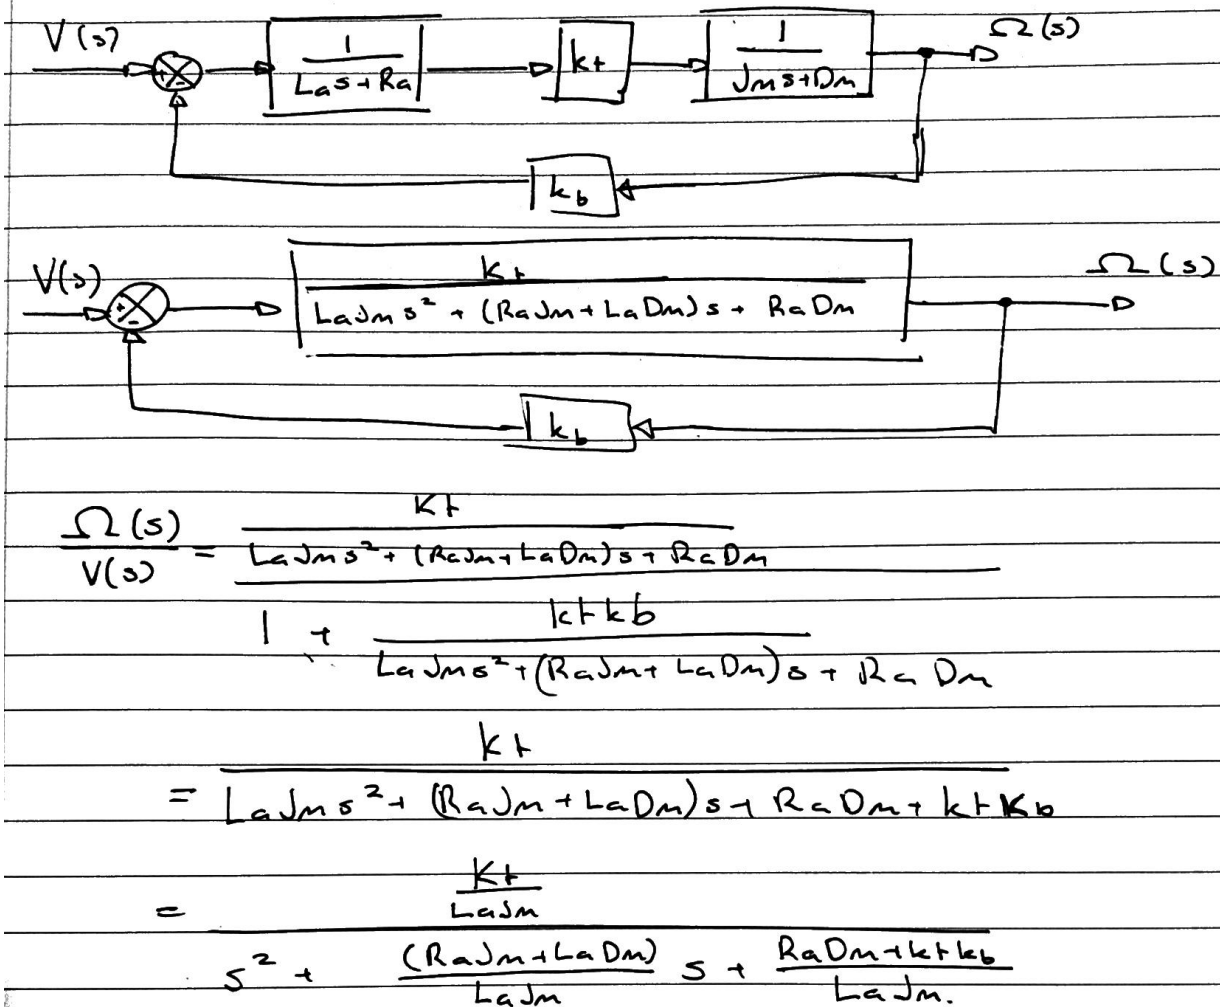 V(s) + - 1 / (Las+Ra) kt 1 / (Jms+Dm) Ω(s)
kb
V(s) + - Kt / (LaJms² + (RaJm+LaDm)s + RaDm) Ω(s)
kb
Ω(s) / V(s) = (Kt / (LaJms² + (RaJm+LaDm)s + RaDm)) / (1 + ktkb / (LaJms² + (RaJm+LaDm)s + RaDm))
= kt / (LaJms² + (RaJm+LaDm)s + RaDm + ktKb)
= (Kt / LaJm) / (s² + (RaJm+LaDm) / LaJm s + (RaDm+ktkb) / LaJm.)